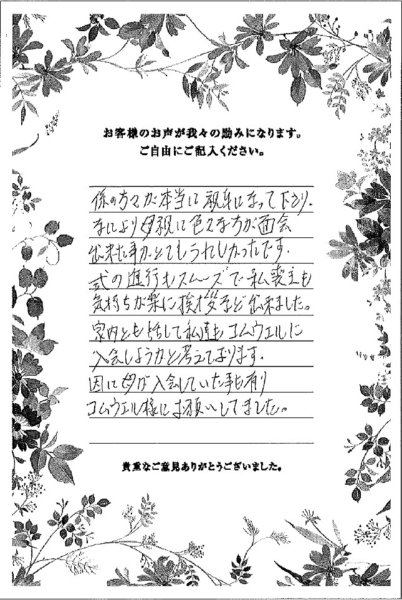 お客様のお声が我々の励みになります。
ご自由にご記入ください。
係の方々が本当に親身になって下さり、
なにより母親に色々な方が面会
出来た事がとてもうれしかったです。
式の進行もスムーズで私喪主も
気持ちが楽に挨拶など出来ました。
家内とも話して私達もコムウェルに
入会しようかと考えております。
因に母が入会していた事も有り
コムウェル様にお願いしてました。
貴重なご意見ありがとうございました。